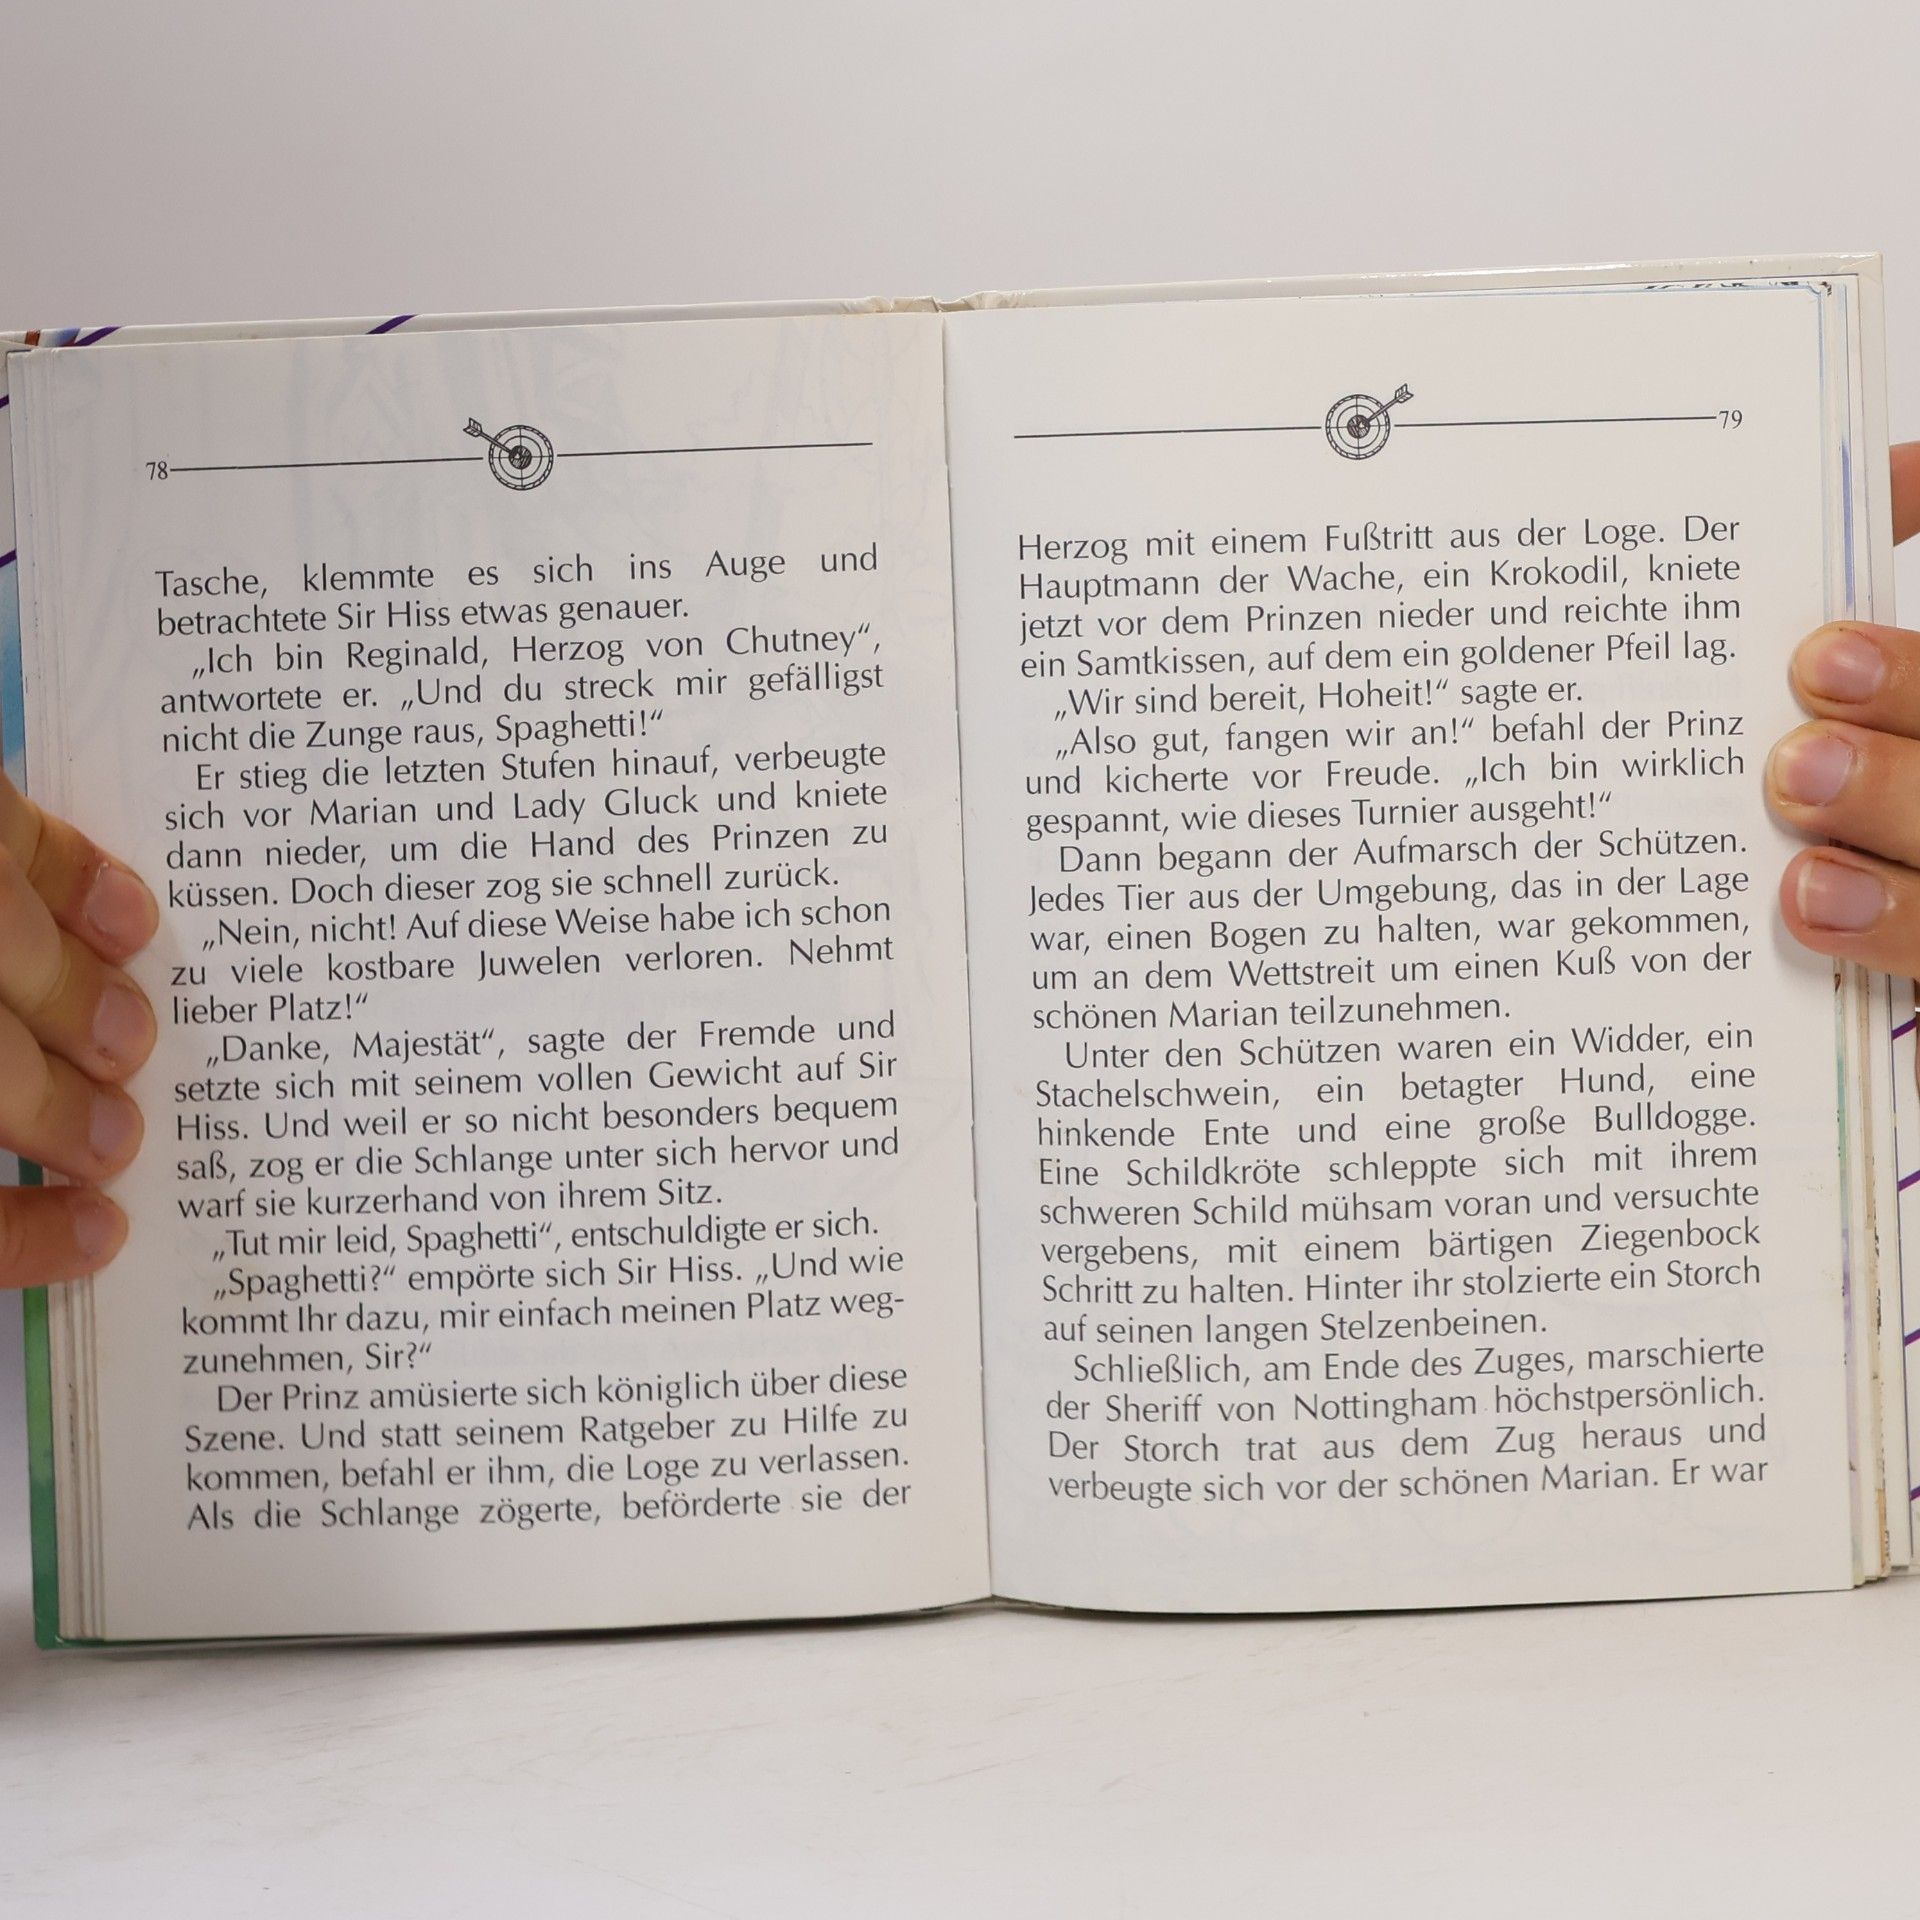 78
Tasche, klemmte es sich ins Auge und
betrachtete Sir Hiss etwas genauer.
„Ich bin Reginald, Herzog von Chutney“,
antwortete er. „Und du streck mir gefälligst
nicht die Zunge raus, Spaghetti!“
Er stieg die letzten Stufen hinauf, verbeugte
sich vor Marian und Lady Gluck und kniete
dann nieder, um die Hand des Prinzen zu
küssen. Doch dieser zog sie schnell zurück.
„Nein, nicht! Auf diese Weise habe ich schon
zu viele kostbare Juwelen verloren. Nehmt
lieber Platz!“
„Danke, Majestät“, sagte der Fremde und
setzte sich mit seinem vollen Gewicht auf Sir
Hiss. Und weil er so nicht besonders bequem
saß, zog er die Schlange unter sich hervor und
warf sie kurzerhand von ihrem Sitz.
„Tut mir leid, Spaghetti“, entschuldigte er sich.
„Spaghetti?“ empörte sich Sir Hiss. „Und wie
kommt Ihr dazu, mir einfach meinen Platz weg-
zunehmen, Sir?“
Der Prinz amüsierte sich königlich über diese
Szene. Und statt seinem Ratgeber zu Hilfe zu
kommen, befahl er ihm, die Loge zu verlassen.
Als die Schlange zögerte, beförderte sie der
79
Herzog mit einem Fußtritt aus der Loge. Der
Hauptmann der Wache, ein Krokodil, kniete
jetzt vor dem Prinzen nieder und reichte ihm
ein Samtkissen, auf dem ein goldener Pfeil lag.
„Wir sind bereit, Hoheit!“ sagte er.
„Also gut, fangen wir an!“ befahl der Prinz
und kicherte vor Freude. „Ich bin wirklich
gespannt, wie dieses Turnier ausgeht!“
Dann begann der Aufmarsch der Schützen.
Jedes Tier aus der Umgebung, das in der Lage
war, einen Bogen zu halten, war gekommen,
um an dem Wettstreit um einen Kuß von der
schönen Marian teilzunehmen.
Unter den Schützen waren ein Widder, ein
Stachelschwein, ein betagter Hund, eine
hinkende Ente und eine große Bulldogge.
Eine Schildkröte schleppte sich mit ihrem
schweren Schild mühsam voran und versuchte
vergebens, mit einem bärtigen Ziegenbock
Schritt zu halten. Hinter ihr stolzierte ein Storch
auf seinen langen Stelzenbeinen.
Schließlich, am Ende des Zuges, marschierte
der Sheriff von Nottingham höchstpersönlich.
Der Storch trat aus dem Zug heraus und
verbeugte sich vor der schönen Marian. Er war